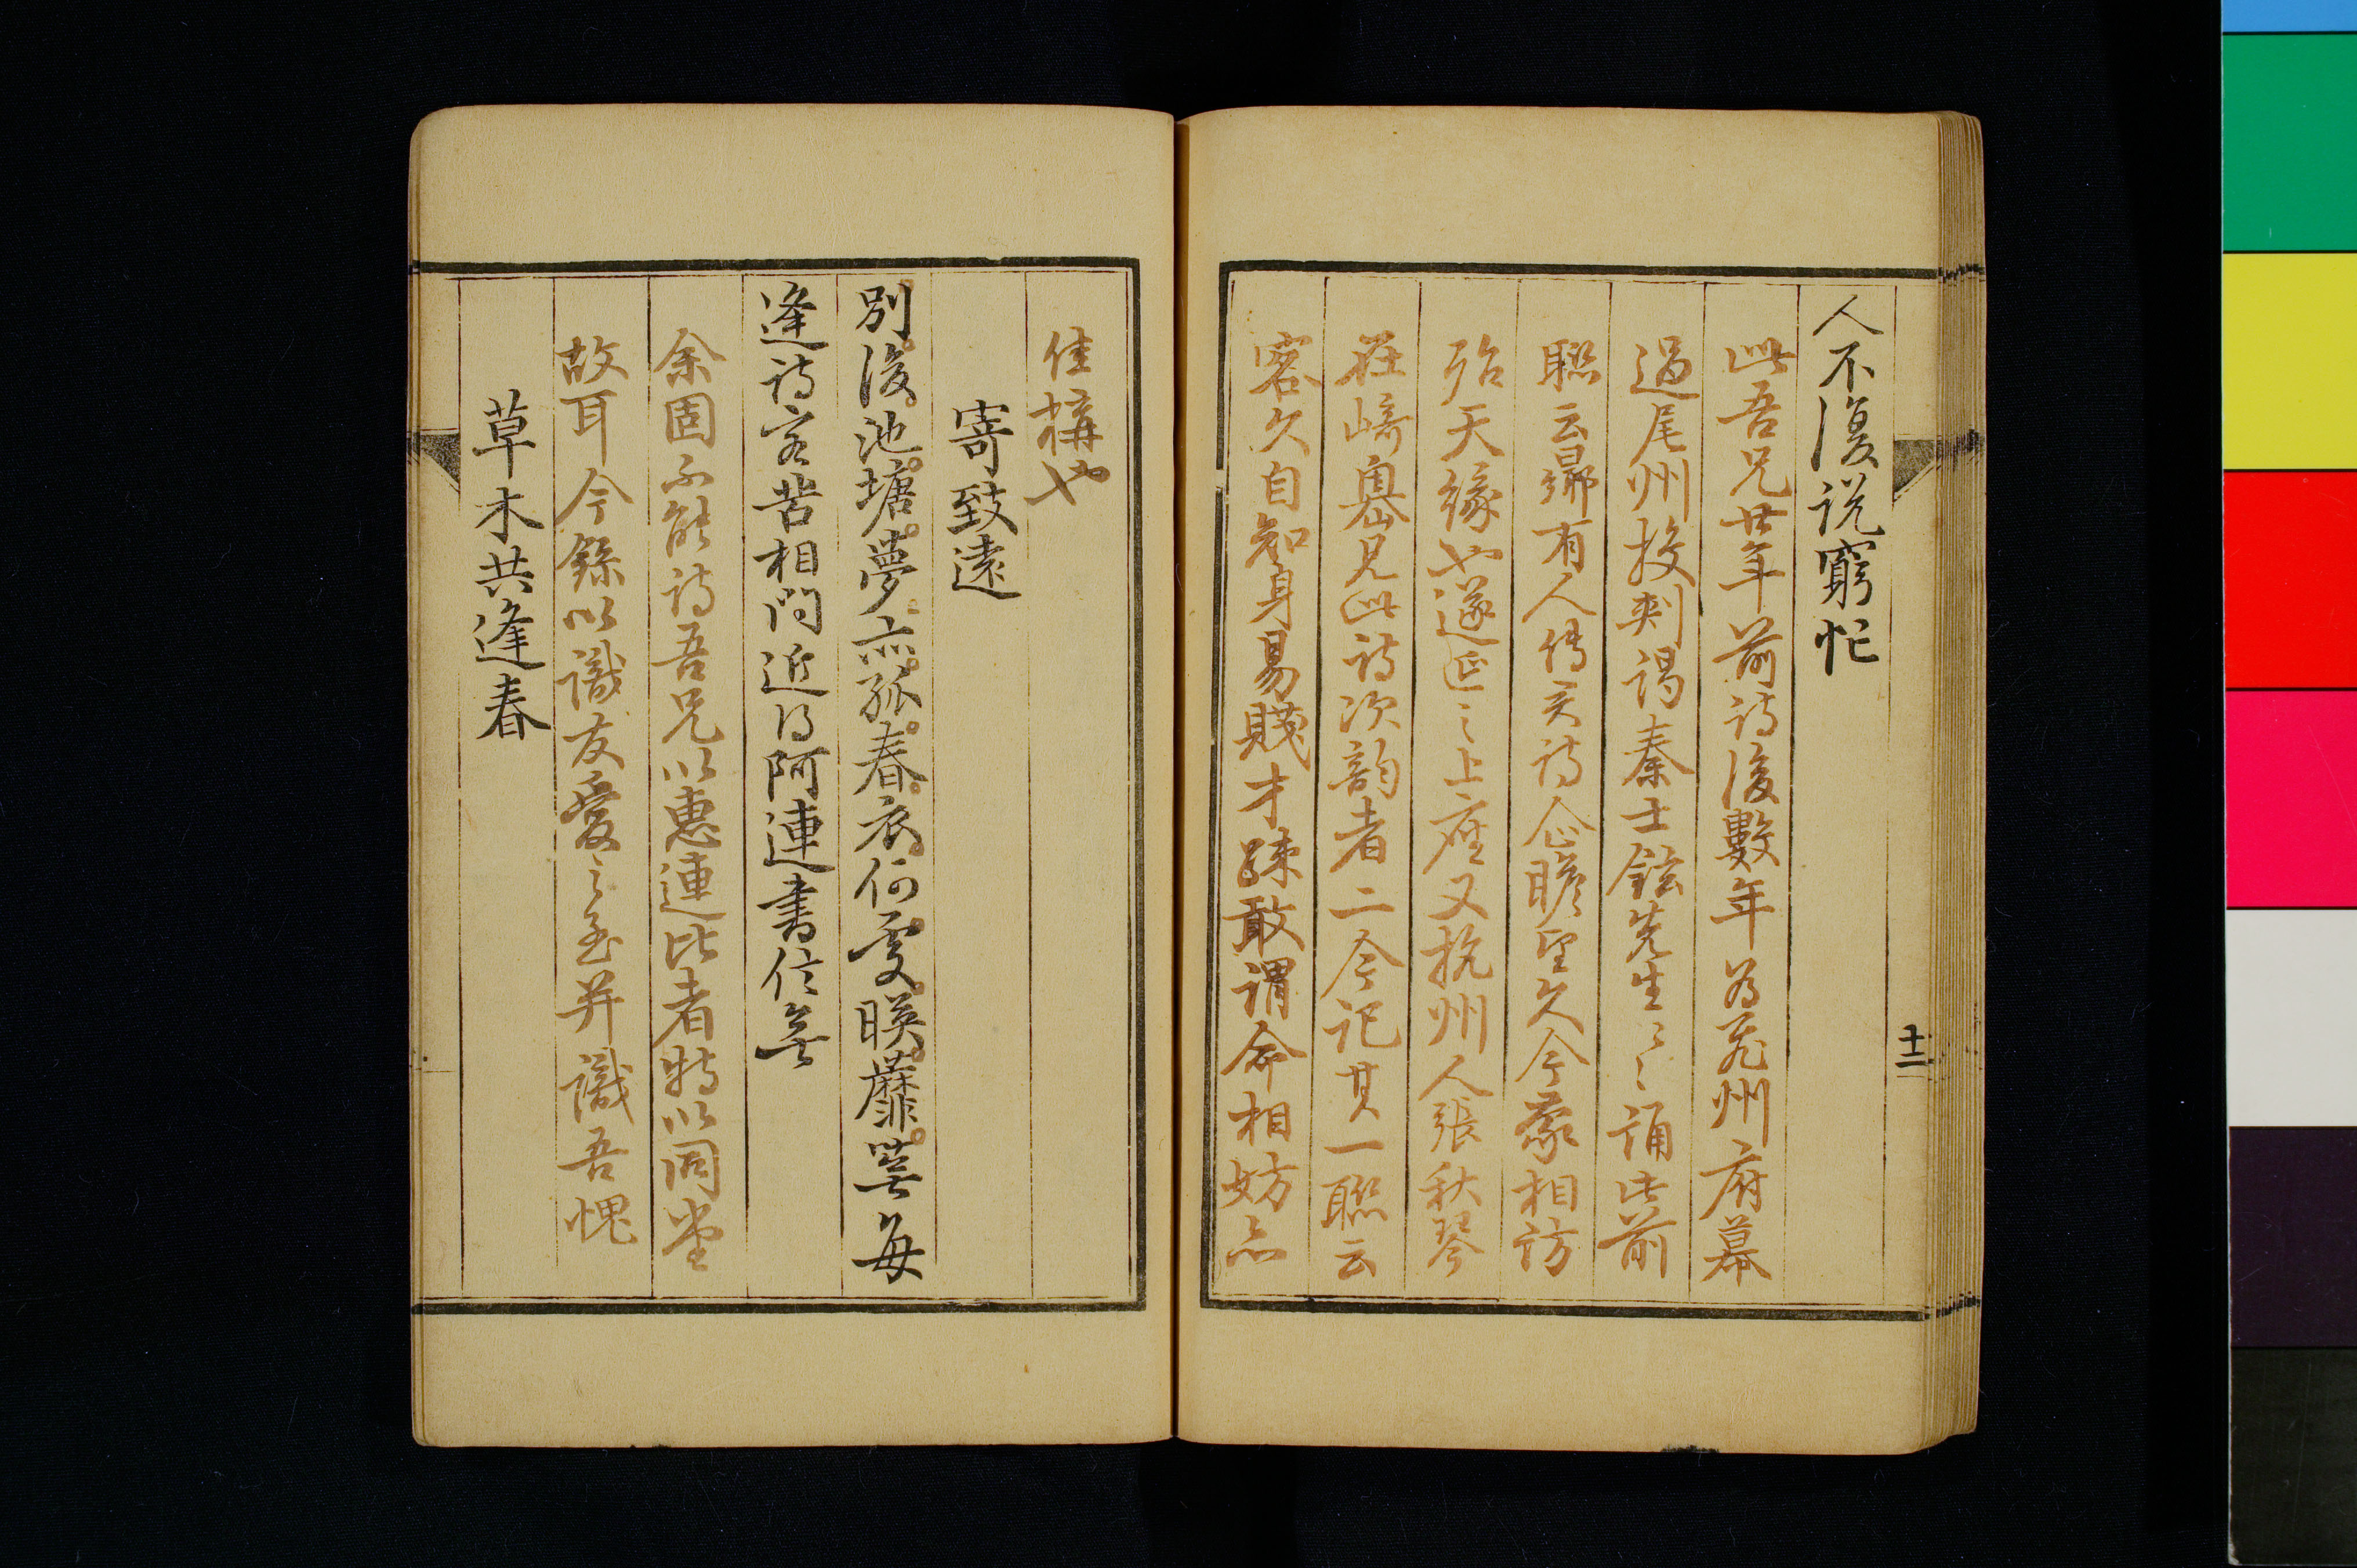 人不復説窮忙
此吾兄廿年前詩後數年為藝州府幕
過尾州投刺謁秦士鉉先生々々誦此前
聯云曩有人傳君詩企瞻望久今蒙相訪
殆天縁也遂延之上座又杭州人張秋琴
在崎嶴見此詩次韵者二今記其一聯云
客久自知身易賤才疎敢謂命相妨亦
十二
佳構也
寄致遠
別後池塘夢亦孤春衣何處暎蘼蕪毎
逢詩客苦相問近得阿連書信無
余固不能詩吾兄以惠連比者特以同堂
故耳今録以識友愛之至并識吾愧
草木共逢春